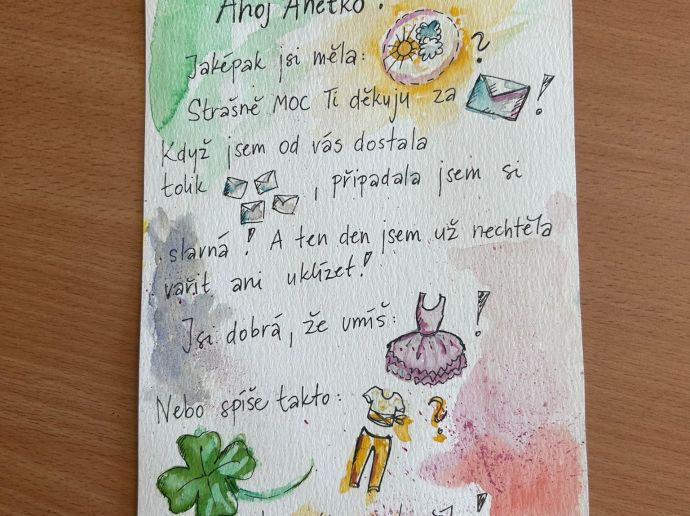 Ahoj Anetko!
Jaképak jsi měla: ?
Strašně MOC Ti děkuju za !
Když jsem od vás dostala
tolik , připadala jsem si
slavná! A ten den jsem už nechtěla
vařit ani uklízet!
Jsi dobrá, že umíš: !
Nebo spíše takto: ?
!